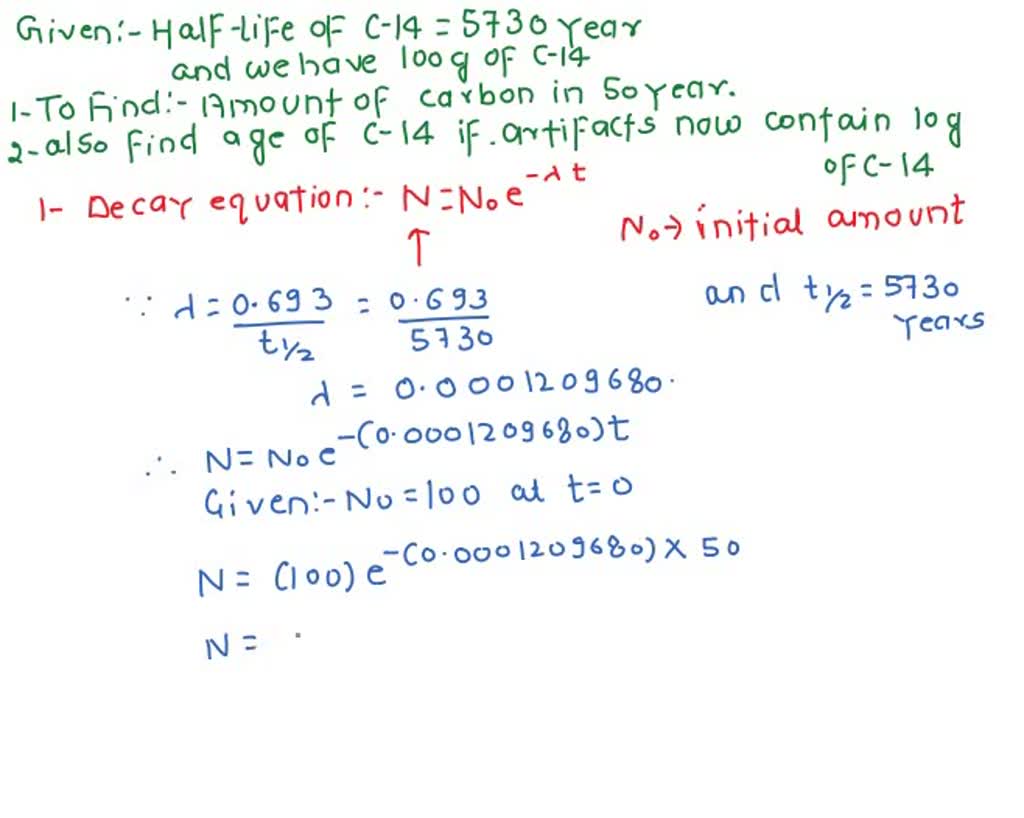 Given:- Half-life of C-14 = 5730 year
and we have 100g of C-14
1-To find:- Amount of carbon in 50 year.
2-also find age of C-14 if. artifacts now contain 10g
of C-14
1- Decay equation:- N=N₀e^-λt
↑
N₀→ initial amount
∵ λ = 0.693/t1/2 = 0.693/5730
and t1/2 = 5730
years
λ = 0.0001209680.
∴ N= N₀ e^-(0.0001209680)t
Given:- N₀ = 100 at t=0
N = (100) e^-(0.0001209680) × 50
N = .